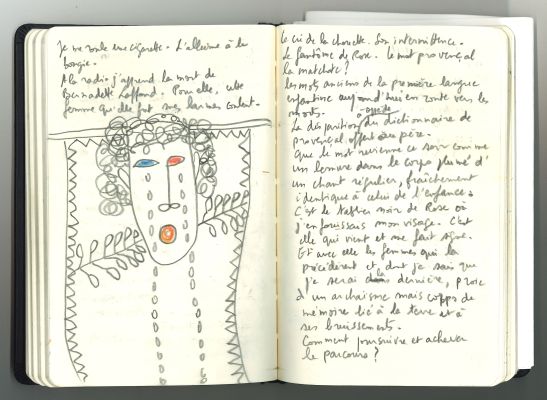 Je me roule une cigarette. L'allume à la
bougie.
A la radio j'apprend la mort de
Bernadette Laffond. Pour elle, cette
femme qu'elle fut mes larmes coulent.
Le cri de la chouette. Son intermittence.
Le fantôme de Rose. Le mot provençal
la machotte !
les mots anciens de la première langue
enfantine aujourd'hui en route vers les
La disparition du dictionnaire de
provençal offert au père.
Que le mot revienne ce soir comme
un lemure dans le corps plumé d'
un chant régulier, fraîchement
identique à celui de l'enfance.
C'est le tablier noir de Rose où
j'enfouissais mon visage. C'est
elle qui vient et me fait signe.
Et avec elle les femmes qui la
précédèrent et dont je sais que
je serai la dernière, proie
d'un archaïsme mais corps de
mémoire lié à la terre et à
ses bruissements.
Comment poursuivre et achever
le parcours ?